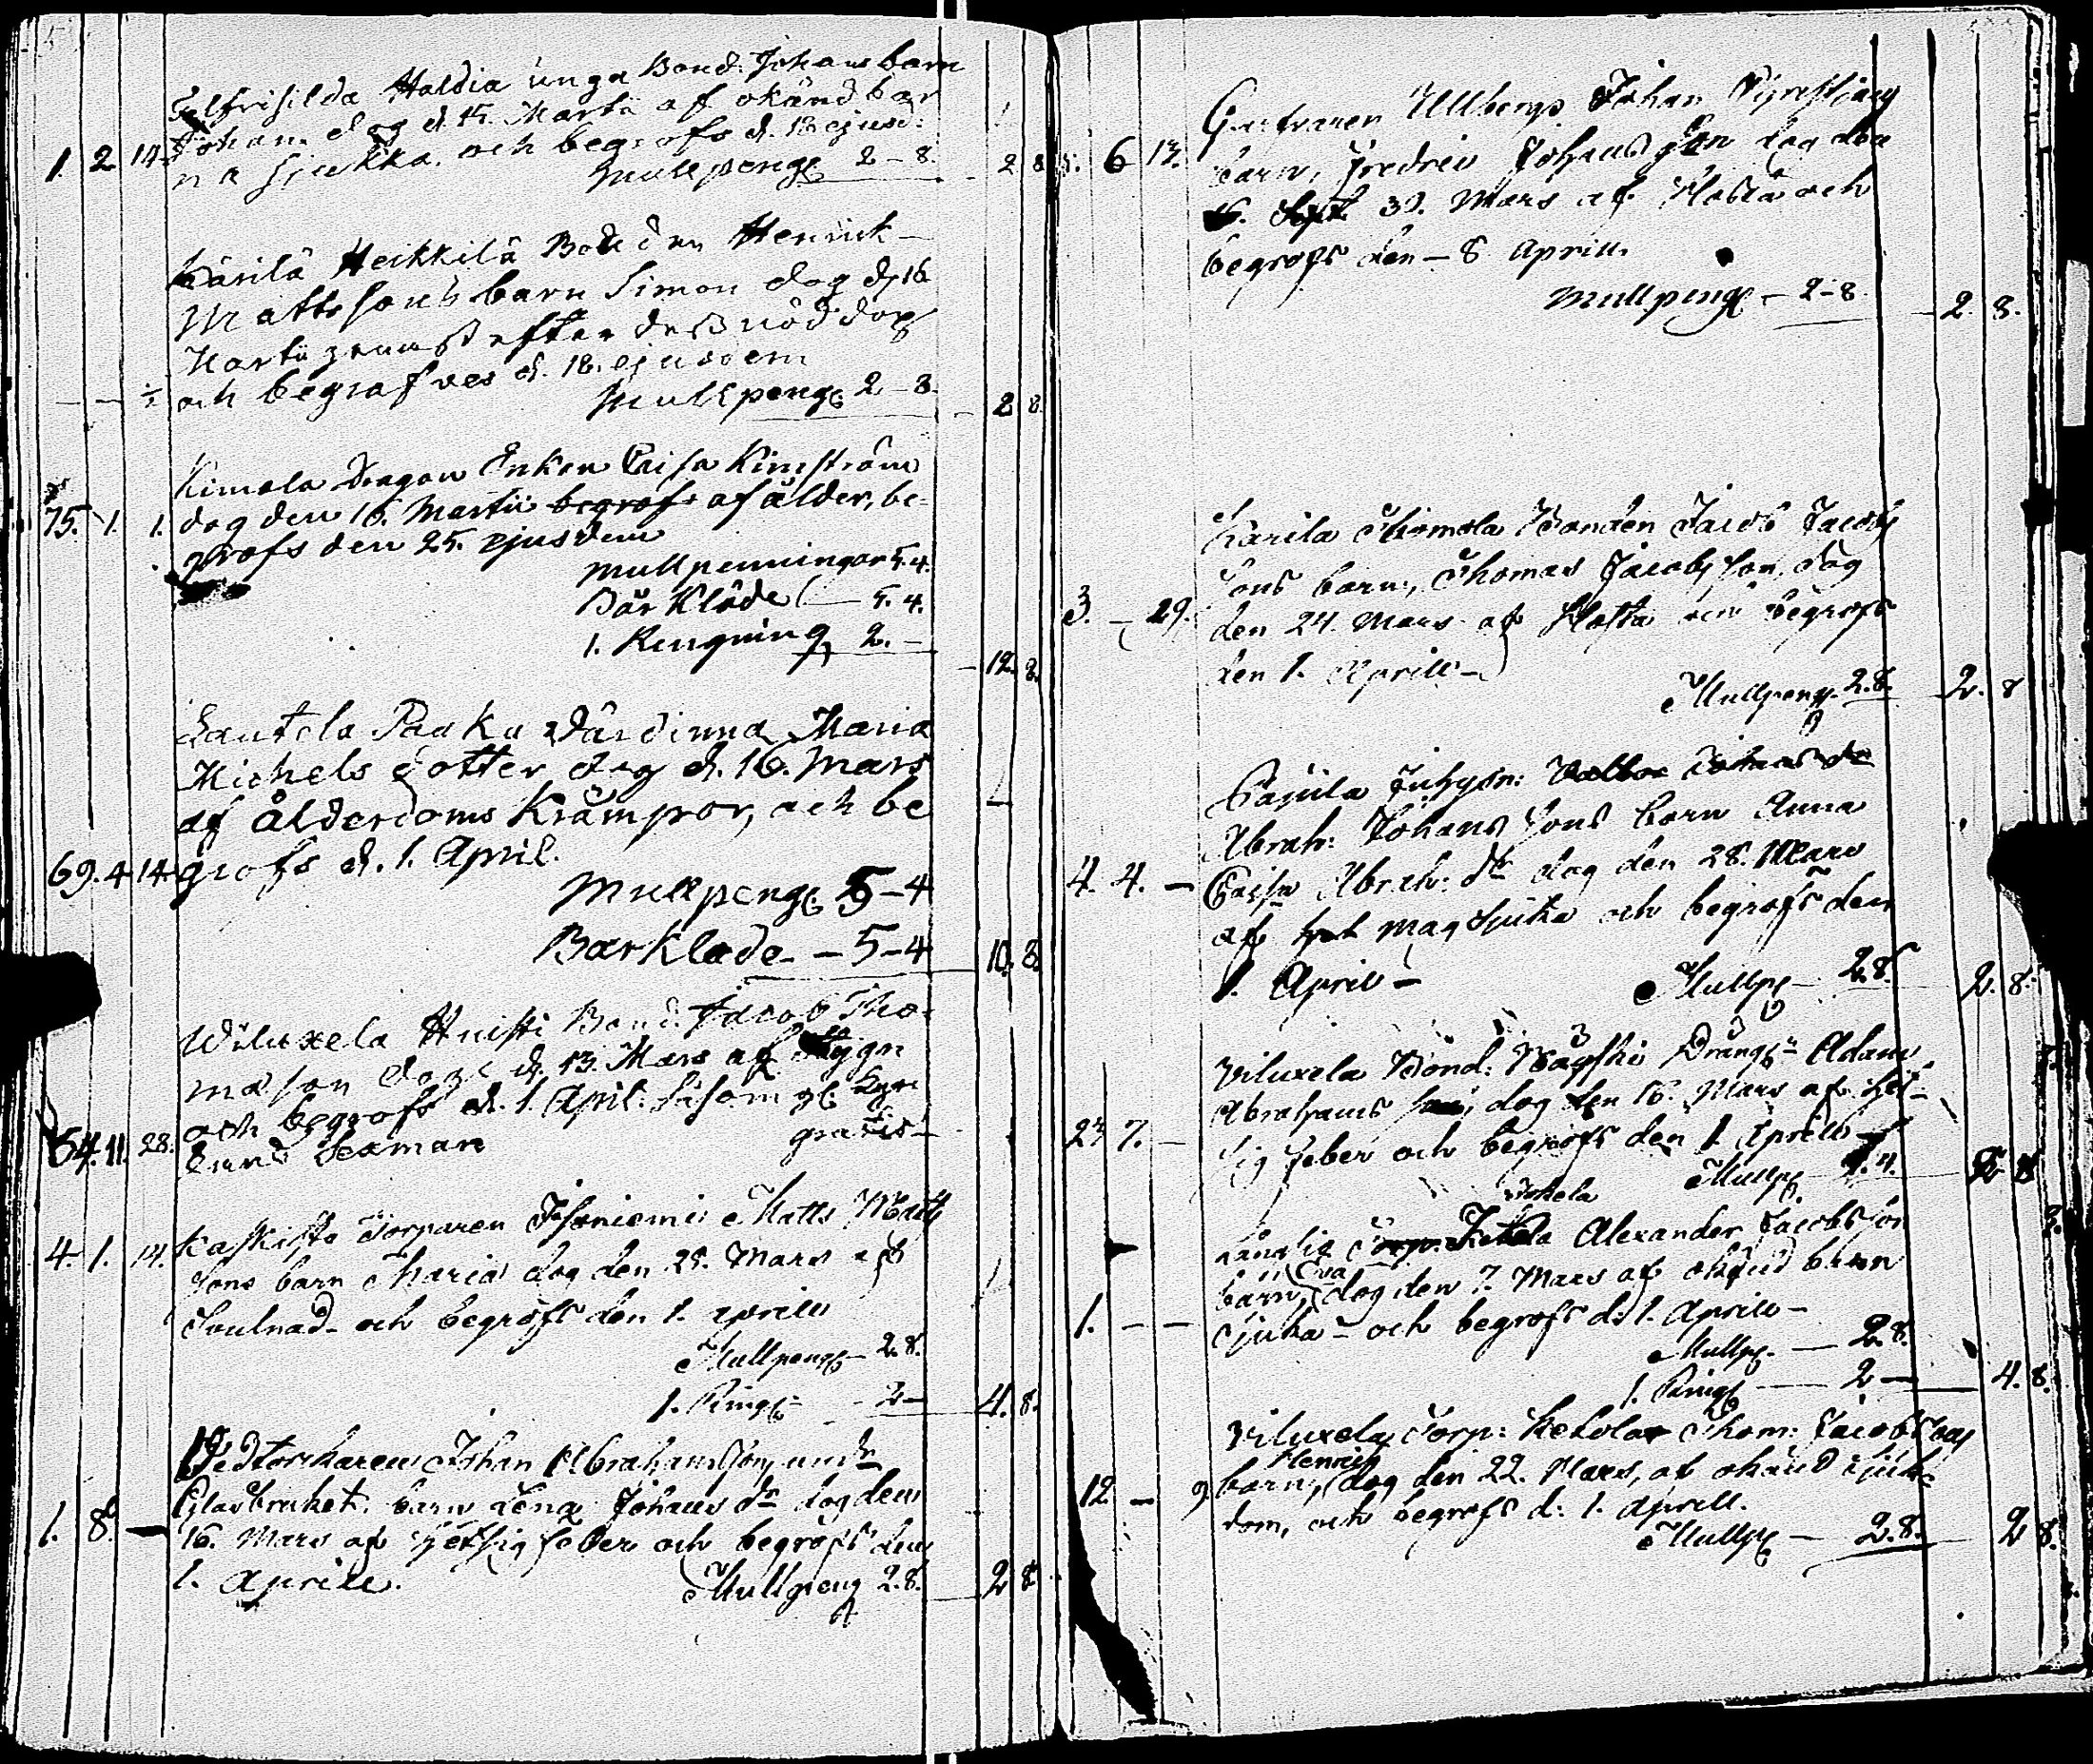 Haldia unga Bond. Johans barn
Johan dog d. 15. Martii af okänd bar
1. 2 14 na sjukka och begrofs d. 18 ejusd:
Mullpeng 2-8. 2 8
Karilä Heikkilä Bonden Henrick
Mattssons barn Simon dog d. 16
Martii genast efter dess nöddop
- - ½ och begrafves d. 18. ejusdem
Mullpeng 2-8. 2 8.
Kimola Dragon Enkan Caisa Kimström
75. 1. 1. dog den 16. Martii begrofs af ålder, be-
grofs den 25. ejusdem
Mullpenningar 5.4.
Bår Kläde 5.4.
1. Ringning 2.-
12. 8.
Lautela Paaku Värdinna Maria
Michels dotter dog d. 16. Mars
af ålderdoms Krämpor, och be
69. 4 14 grofs d. 1. April.
Mullpeng 5-4
Barklade - 5-4 10. 8.
Wiluxela Huisti Bond. Jacob Tho-
mason dog d. 13. Mars af
och begrofs d. 1. April. Såsom
54. 11. 28. Sexman gratis
Kaskisto Torparen Isoniemi Matts Matts
4. 1. 14. sons barn Maria dog den 25. Mars af
och begrofs den 1. aprill
Mullpeng 2.8.
1. Ring - 2- 4. 8.
Johan Abrahamsons
Glasbruket barn Lena Johans dr dog den
1. 8. - 16. Mars af hetsig feber och begrofs den
1. Aprill. Mullpeng 2.8. 2 8.
Ullbergs Johan
6 13. barn, Fredric Johansson dog den
30. Mars af och
begrofs den - 8 Aprill
Mullpeng - 2-8. 2. 8.
Karila Thomola Bonden Jacob Jacobs
sons barn, Thomas Jacobsson, dog
3. - 29. den 24. Mars af och begrofs
den 1. Aprill -
Mullpeng. 2.8. 2. 8
Abrah: Johans sons barn Anna
4. 4. - Caisa Abrah: dr dog den 28. Mars
af magsjuka och begrofs den
1. April - Mullp - 2.8. 2. 8.
Viluxela Bond: Drängen Adam
Abrahams son, dog den 16. Mars af het-
7. - sig feber och begrofs den 1. Aprill
Mullp
Alexander Jacobsson
barn, Eva dog den 7. Mars af okänd barn
1. - - sjuka - och begrofs d. 1. Aprill -
Mullp. - 2.8.
1. Ring - 2 - 4. 8.
Viluxela Torp: Ketola Thom: Jacobsons
Henric
12 - 9 barn, dog den 22. Mars, af okänd sjuk-
dom, och begrofs d: 1. Aprill.
Mullp - 2.8. 2 8.